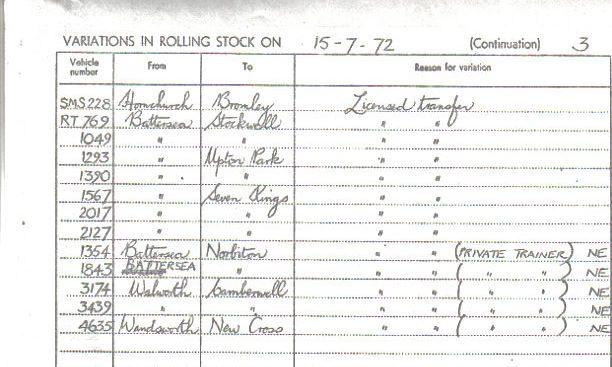 VARIATIONS IN ROLLING STOCK ON 15-7-72 (Continuation) 3
Vehicle number From To Reason for variation
SMS 228 Hornchurch Bromley Licensed transfer
RT 769 Battersea Stockwell " "
1049 " " " "
1293 " Upton Park " "
1390 " " " "
1567 " Seven Kings " "
2017 " " " "
2127 " " " "
1354 Battersea Norbiton " " (PRIVATE TRAINER) NE
1843 BATTERSEA " " " ( " " ) NE
3174 Walworth Camberwell " " ( " " ) NE
3439 " " " " ( " " ) NE
4635 Wandsworth New Cross " " ( " " ) NE